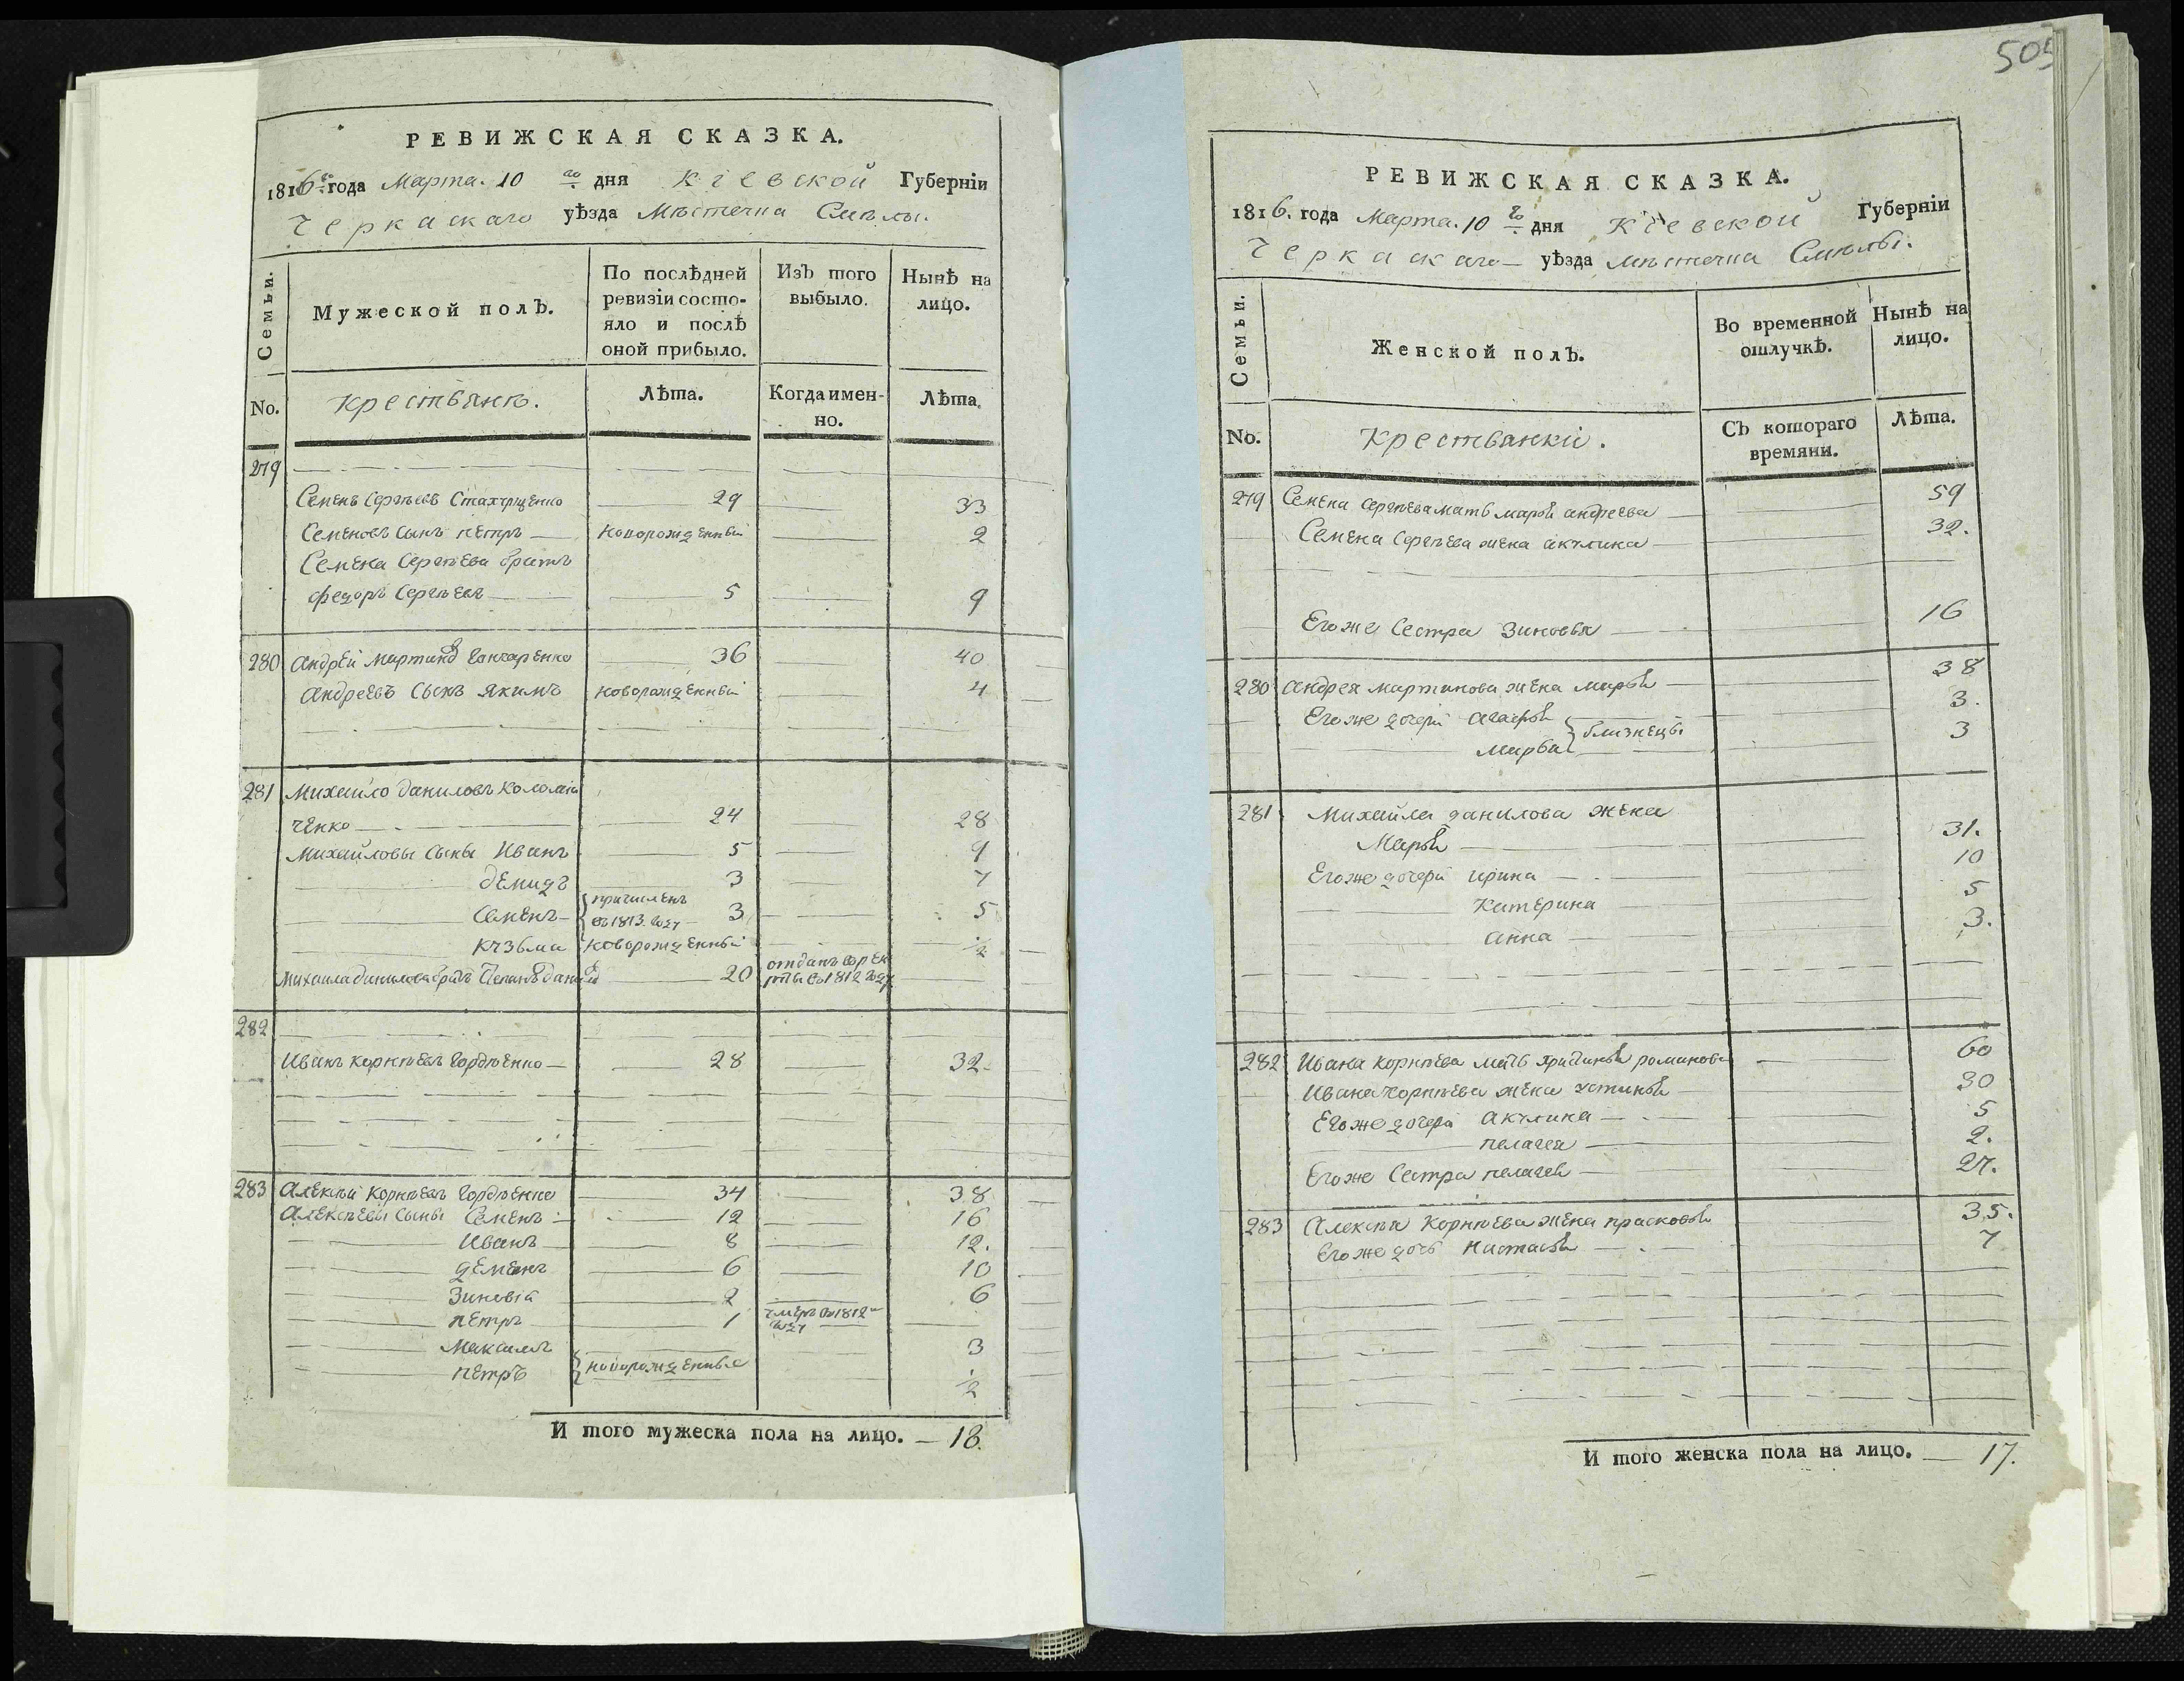 РЕВИЖСКАЯ СКАЗКА.
1816го года Марта. 10 го дня Кіевской Губерніи
Черкаскаго уѣзда Мѣстечка Смѣлы.
Семьи. Мужеской полъ. По послѣдней ревизіи состояло и послѣ оной прибыло. Изъ того выбыло. Нынѣ на лицо.
No. Крестьянъ. Лѣта. Когда именно. Лѣта.
279
Семенъ Сергѣевъ 29 33
Семеновъ Сынъ Петръ новорожденный 2
Семена Сергѣева братъ
Федоръ Сергѣевъ 5 9
280 Андрей Мартиновъ Гончаренко 36 40
Андреевъ Сынъ Якимъ новорожденный 4
281 Михайло Даниловъ Коломій
ченко 24 28
Михайловы Сыны Иванъ 5 9
Демидъ 3 7
Семенъ причисленъ въ 1813. году 3 5
Кузьма новорожденный ½
Михаила Данилова братъ Степанъ Данилов 20 отданъ въ рекруты въ 1812 году
282
Иванъ Корнѣевъ Гордѣенко 28 32.
283 Алексѣй Корнѣевъ Гордѣенко 34 38
Алексѣевы Сыны Семенъ 12 16
Иванъ 8 12.
Деменъ 6 10
Зиновій 2 6
Петръ 1 умеръ въ 1812 году
Максимъ 3
Петръ новорожденные ½
И того мужеска пола на лицо. 18.
505
РЕВИЖСКАЯ СКАЗКА.
1816. года Марта. 10 го дня Кіевской Губерніи
Черкаскаго уѣзда Мѣстечка Смѣлы.
Семьи. Женской полъ. Во временной отлучкѣ. Нынѣ на лицо.
No. Крестьянки. Съ котораго времяни. Лѣта.
279 Семена Сергѣева мать Марья Андреева 59
Семена Сергѣева жена Акулина 32.
Его же Сестра Зиновья 16
280 Андрея Мартинова жена Марья 38
Его же дочери Агафья 3.
Марья близнецы 3
281 Михайла Данилова жена
Марья 31.
Его же дочери Ирина 10
Катерина 5
Анна 3.
282 Ивана Корнѣева мать Романова 60
Ивана Корнѣева жена Устинья 30
Его же дочери Акулина 5
Пелагея 2.
Его же Сестра Пелагея 27.
283 Алексѣя Корнѣева жена Прасковья 35.
Его же дочь Настасья 7
И того женска пола на лицо. 17.